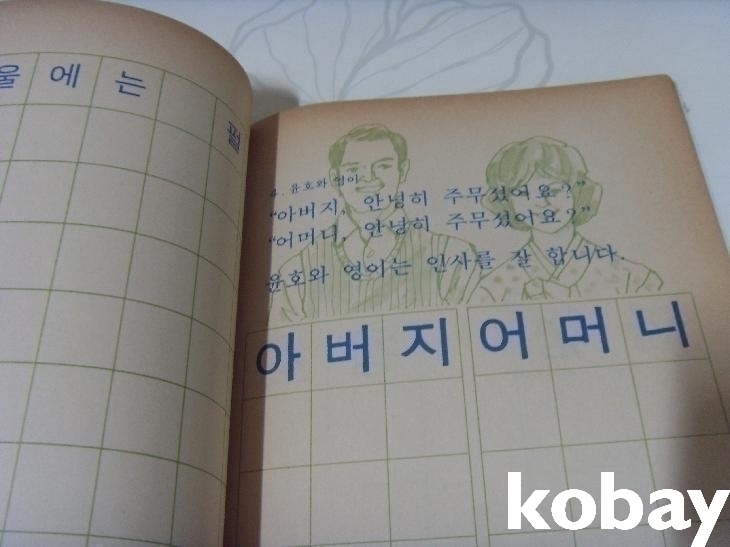 울에는
펄
4. 윤호와 영이
“아버지, 안녕히 주무셨어요?”
“어머니, 안녕히 주무셨어요?”
윤호와 영이는 인사를 잘 합니다.
아버지어머니
kobay